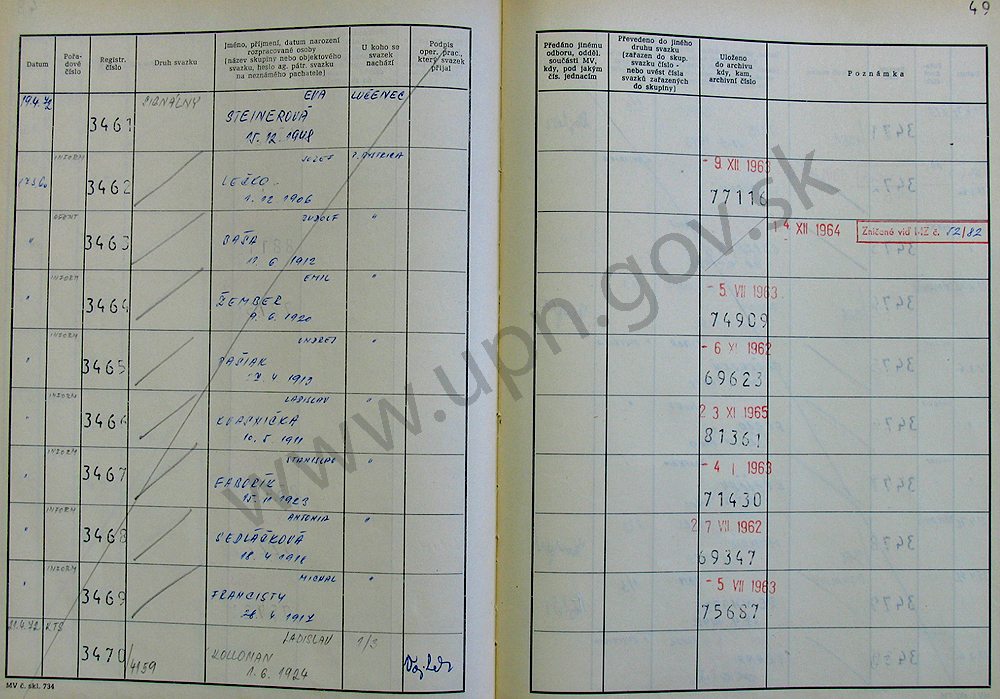 49
Datum
Pořa-
dové
číslo
Registr.
číslo
Druh svazku
Jméno, příjmení, datum narození
rozpracované osoby
(název skupiny nebo objektového
svazku, heslo ag. pátr. svazku
na neznámého pachatele)
U koho se
svazek
nachází
Podpis
oper. prac.,
který svazek
přijal
Předáno jinému
odboru, odděl.
součásti MV,
kdy, pod jakým
čís. jednacím
Převedeno do jiného
druhu svazku
(zařazen do skup.
svazku číslo -
nebo uvést čísla
svazků zařazených
do skupiny)
Uloženo
do archivu
kdy, kam,
archivní číslo
Poznámka
19.4.72 3461 SIGNÁLNY EVA LUČENEC
STEINEROVÁ
15.12.1948
INFORM JOZEF
3462 LEŠKO - 9. XII 1963
1.12.1906 77116
AGENT RUDOLF "
" 3463 BAŠA 4 XII 1964 Zničené viď MZ č. 52/82
1912
INFORM EMIL "
" 3464 ŽEMBER - 5. VII 1963
9.6.1920 74909
INFORM ONDREJ "
" 3465 PAŠIAK - 6 XI 1962
4 1913 69623
INFORM LADISLAV "
" 3466 2 3 XI 1965
10.5.1911 81361
INFORM STANISLAV "
" 3467 - 4 I 1963
15.11.1923 71430
INFORM ANTONIA "
" 3468 SEDLÁČKOVÁ 2 7 VII 1962
69347
INFORM MICHAL "
" 3469 FRANCISTY - 5 VII 1963
28.4.1917 75687
21.4.72 KTS LADISLAV 1/3
3470/4159 KOLLOMAN
1.6.1924
MV č. skl. 734
www.upn.gov.sk